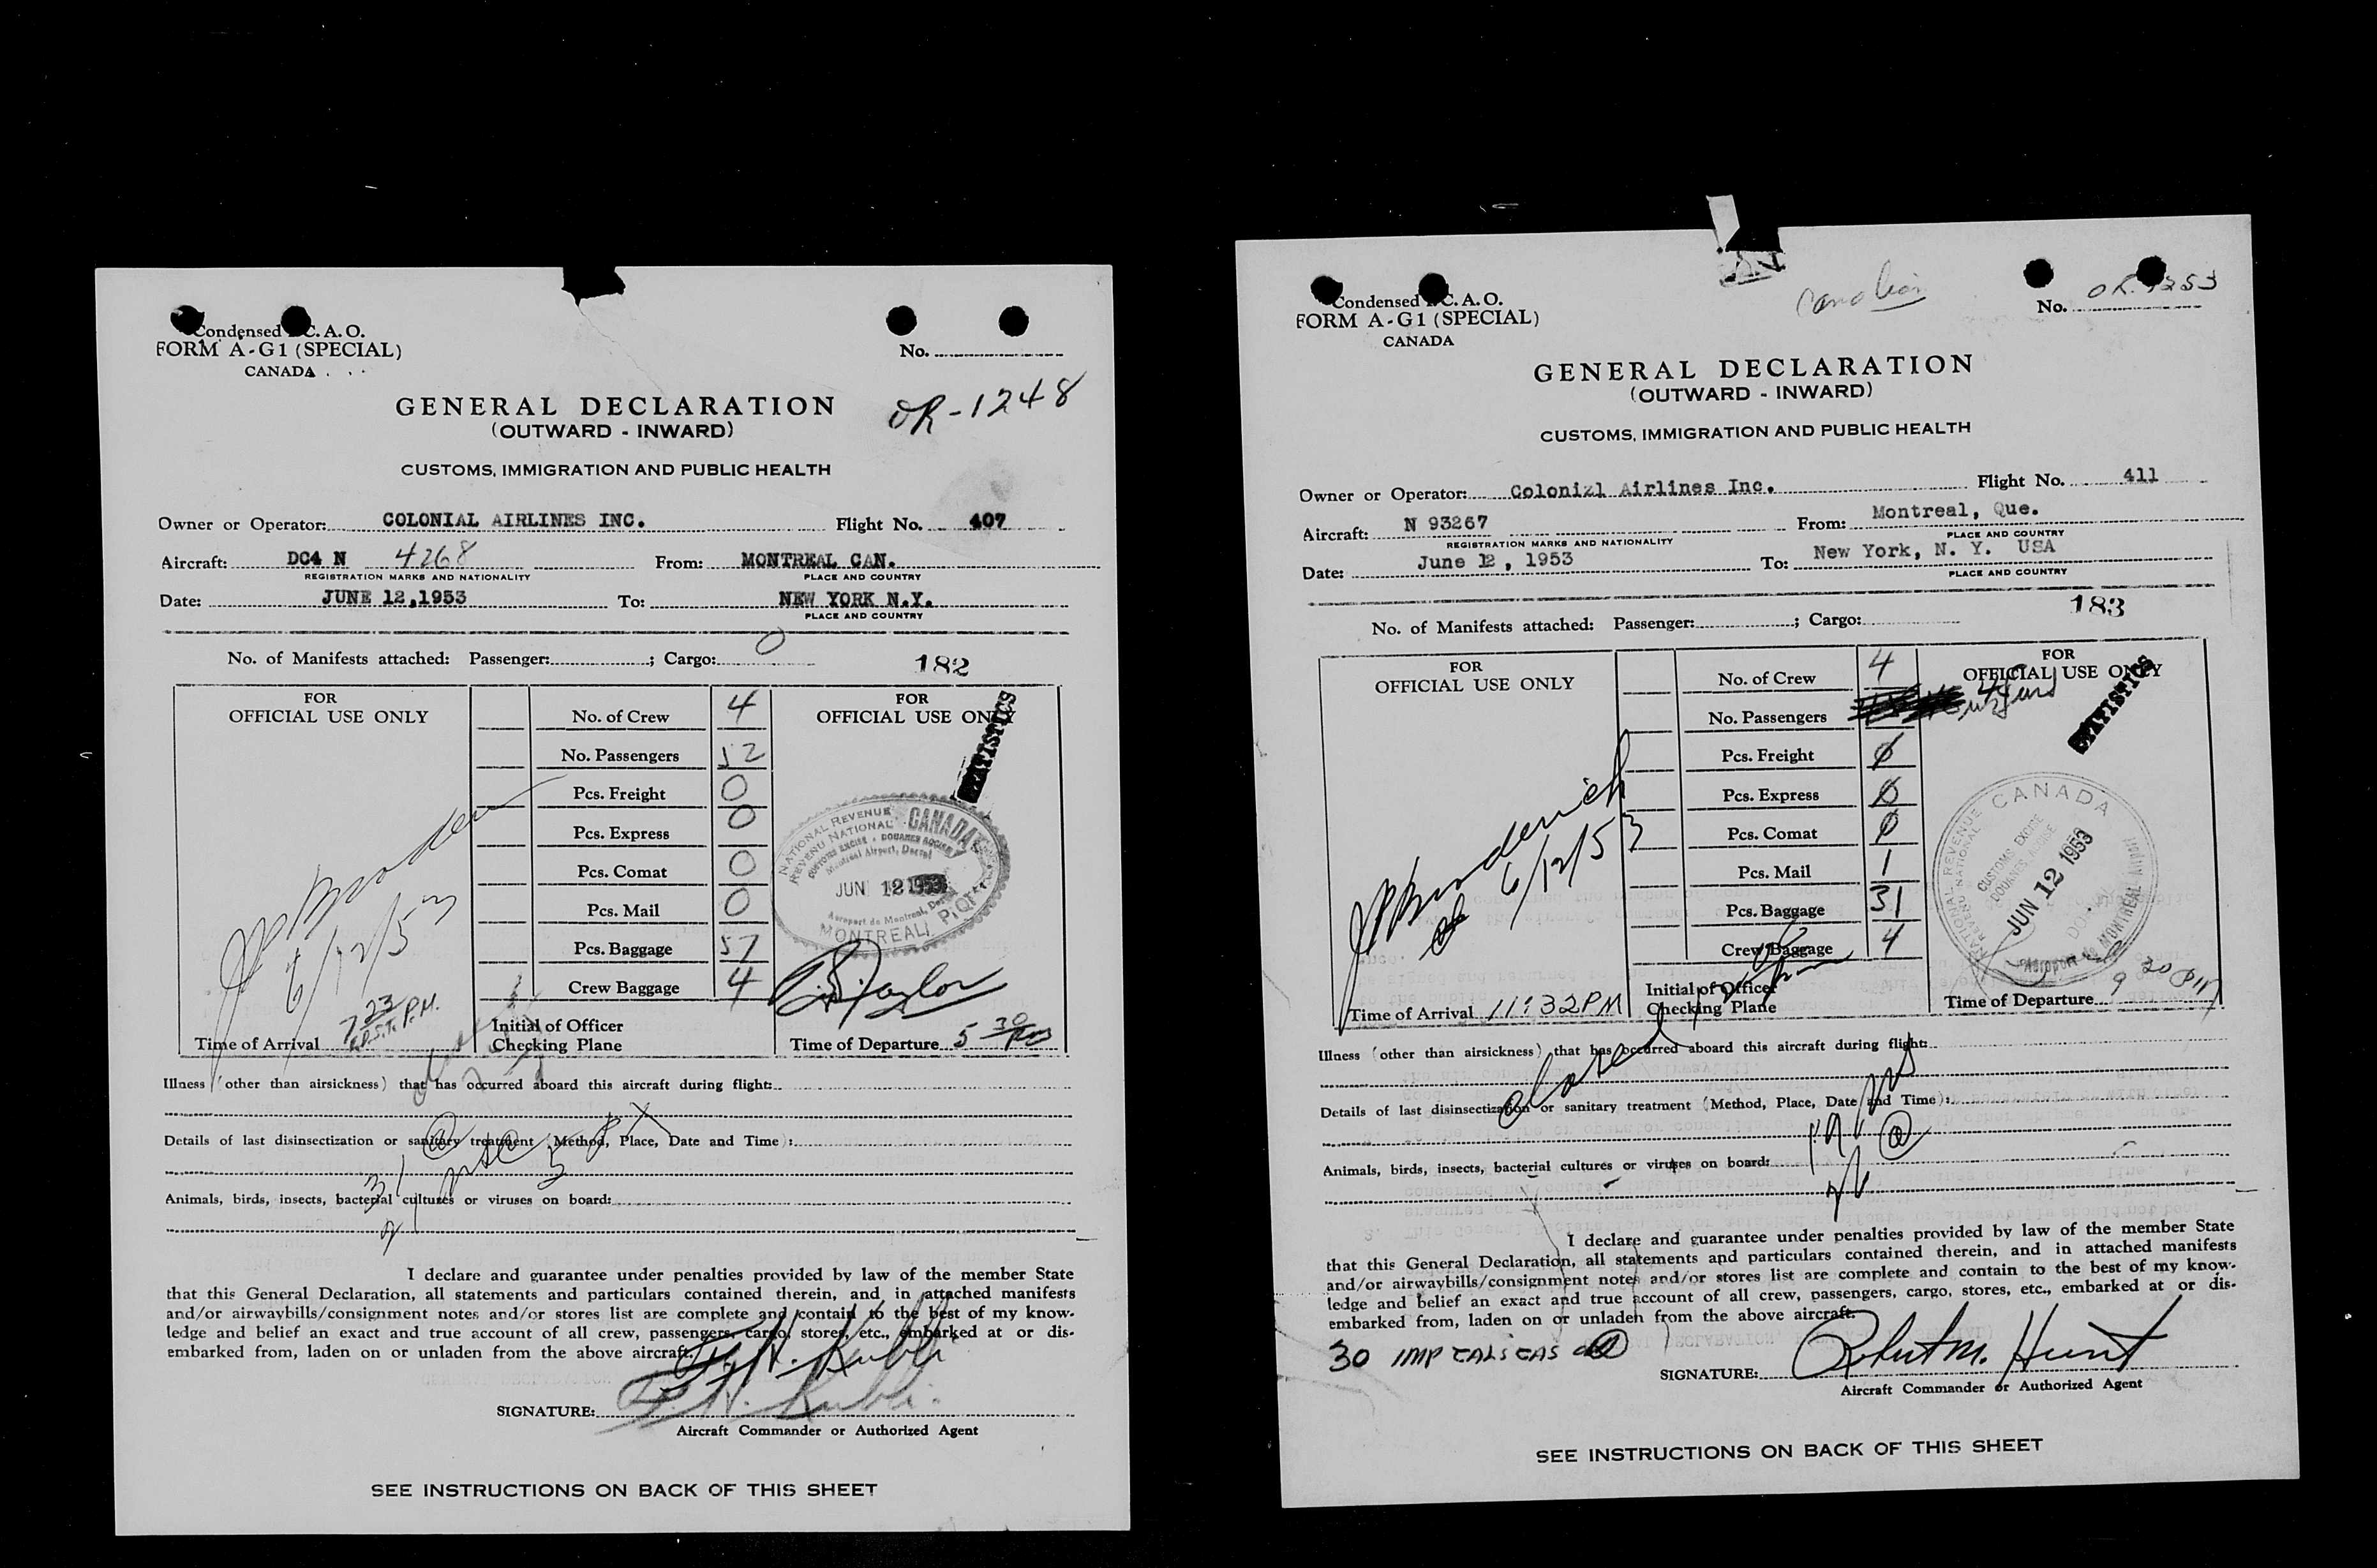 Condensed C. A. O.
FORM A-G1 (SPECIAL)
CANADA
No.
OR-1248
GENERAL DECLARATION
(OUTWARD - INWARD)
CUSTOMS, IMMIGRATION AND PUBLIC HEALTH
Owner or Operator: COLONIAL AIRLINES INC. Flight No. 407
Aircraft: DC4 N 4268 From: MONTREAL CAN.
REGISTRATION MARKS AND NATIONALITY PLACE AND COUNTRY
Date: JUNE 12,1953 To: NEW YORK N.Y.
PLACE AND COUNTRY
No. of Manifests attached: Passenger: ; Cargo: 0
182
FOR
OFFICIAL USE ONLY
No. of Crew 4
No. Passengers 52
Pcs. Freight 0
Pcs. Express 0
Pcs. Comat 0
Pcs. Mail 0
Pcs. Baggage 57
Crew Baggage 4
Initial of Officer
Checking Plane
FOR
OFFICIAL USE ONLY
STATISTICS
NATIONAL REVENUE CANADA
REVENU NATIONAL
CUSTOMS EXCISE - DOUANES ACCISE
Montreal Airport, Dorval
JUN 12 1953
Aeroport de Montreal, Dorval
MONTREAL P.Q.
6/12/53
7 23 P.M.
E.D.S.T.
Time of Arrival
Taylor
Time of Departure 5 30 PM
Illness (other than airsickness) that has occurred aboard this aircraft during flight:
Details of last disinsectization or sanitary treatment (Method, Place, Date and Time):
Animals, birds, insects, bacterial cultures or viruses on board:
I declare and guarantee under penalties provided by law of the member State
that this General Declaration, all statements and particulars contained therein, and in attached manifests
and/or airwaybills/consignment notes and/or stores list are complete and contain to the best of my know-
ledge and belief an exact and true account of all crew, passengers, cargo, stores, etc., embarked at or dis-
embarked from, laden on or unladen from the above aircraft.
SIGNATURE:
Aircraft Commander or Authorized Agent
SEE INSTRUCTIONS ON BACK OF THIS SHEET
Condensed C. A. O.
FORM A-G1 (SPECIAL)
CANADA
Canadian
No. OR.1253
GENERAL DECLARATION
(OUTWARD - INWARD)
CUSTOMS, IMMIGRATION AND PUBLIC HEALTH
Owner or Operator: Colonizl Airlines Inc. Flight No. 411
Aircraft: N 93267 From: Montreal, Que.
REGISTRATION MARKS AND NATIONALITY PLACE AND COUNTRY
Date: June 12, 1953 To: New York, N. Y. USA
PLACE AND COUNTRY
No. of Manifests attached: Passenger: ; Cargo:
183
FOR
OFFICIAL USE ONLY
No. of Crew 4
No. Passengers
Pcs. Freight 0
Pcs. Express 0
Pcs. Comat 0
Pcs. Mail 1
Pcs. Baggage 31
Crew Baggage 4
Initial of Officer
Checking Plane
FOR
OFFICIAL USE ONLY
STATISTICS
NATIONAL REVENUE CANADA
REVENU NATIONAL
CUSTOMS EXCISE
DOUANES ACCISE
JUN 12 1953
DORVAL
Aeroport de MONTREAL Airport
6/12/53
Time of Arrival 11:32PM
Time of Departure 9 30 PM
Illness (other than airsickness) that has occurred aboard this aircraft during flight:
closed
Details of last disinsectization or sanitary treatment (Method, Place, Date and Time):
Animals, birds, insects, bacterial cultures or viruses on board:
I declare and guarantee under penalties provided by law of the member State
that this General Declaration, all statements and particulars contained therein, and in attached manifests
and/or airwaybills/consignment notes and/or stores list are complete and contain to the best of my know-
ledge and belief an exact and true account of all crew, passengers, cargo, stores, etc., embarked at or dis-
embarked from, laden on or unladen from the above aircraft.
30 IMP GALS GAS
SIGNATURE: Robert M. Hunt
Aircraft Commander or Authorized Agent
SEE INSTRUCTIONS ON BACK OF THIS SHEET